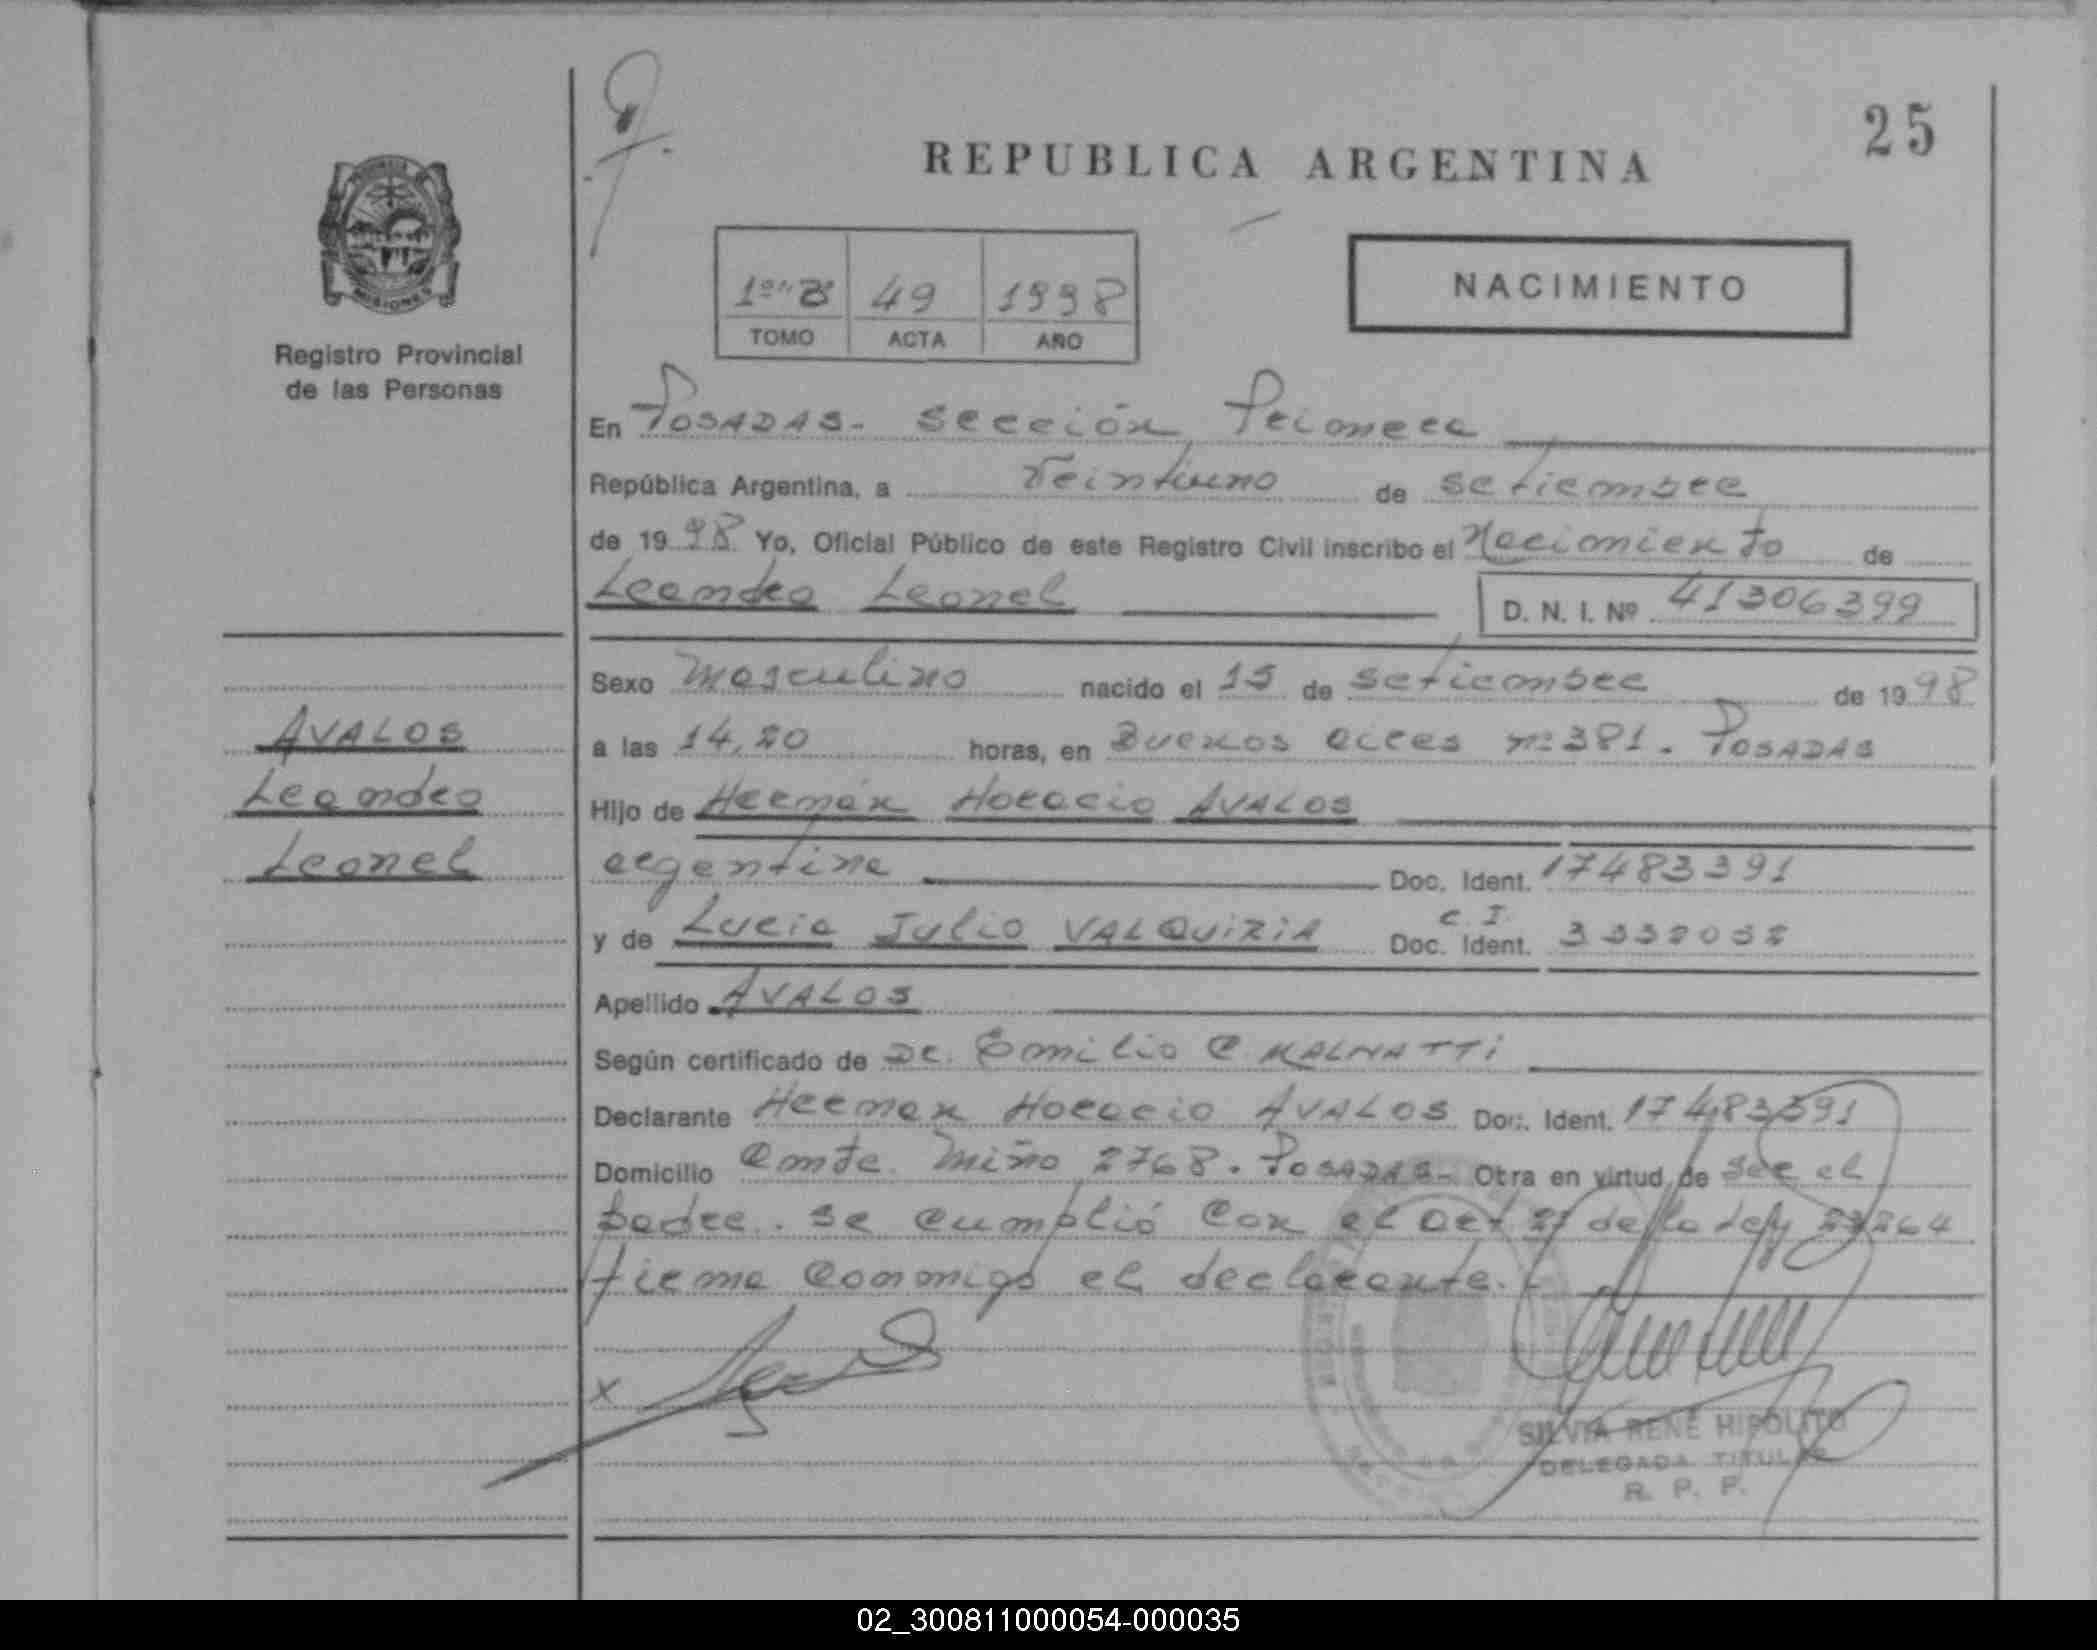 25
REPUBLICA ARGENTINA
MISIONES
Registro Provincial
de las Personas
1º "B" 49 1998
TOMO ACTA AÑO
NACIMIENTO
En POSADAS- Sección Primera
República Argentina, a Veintiuno de setiembre
de 1998 Yo, Oficial Público de este Registro Civil inscribo el Nacimiento de
Leandro Leonel D. N. I. Nº 41306399
Sexo Masculino nacido el 15 de setiembre de 1998
a las 14,20 horas, en Buenos aires nº 381. POSADAS
Hijo de Hernán Horacio AVALOS
argentina Doc. Ident. 17483391
y de Lucia Julia VALQUIRIA C. I. Doc. Ident.
Apellido AVALOS
Según certificado de Dr. Emilio C. MALNATTI
Declarante Hernan Horacio AVALOS Doc. Ident. 17483391
Domicilio Cmte. Miño 2768. POSADAS- Obra en virtud de ser el
padre. Se cumplió con el art de la Ley 23264
firma conmigo el declarante.-
AVALOS
Leandro
Leonel
X
SILVIA RENE HIPOLITO
DELEGADA TITULAR
R. P. P.
02_300811000054-000035